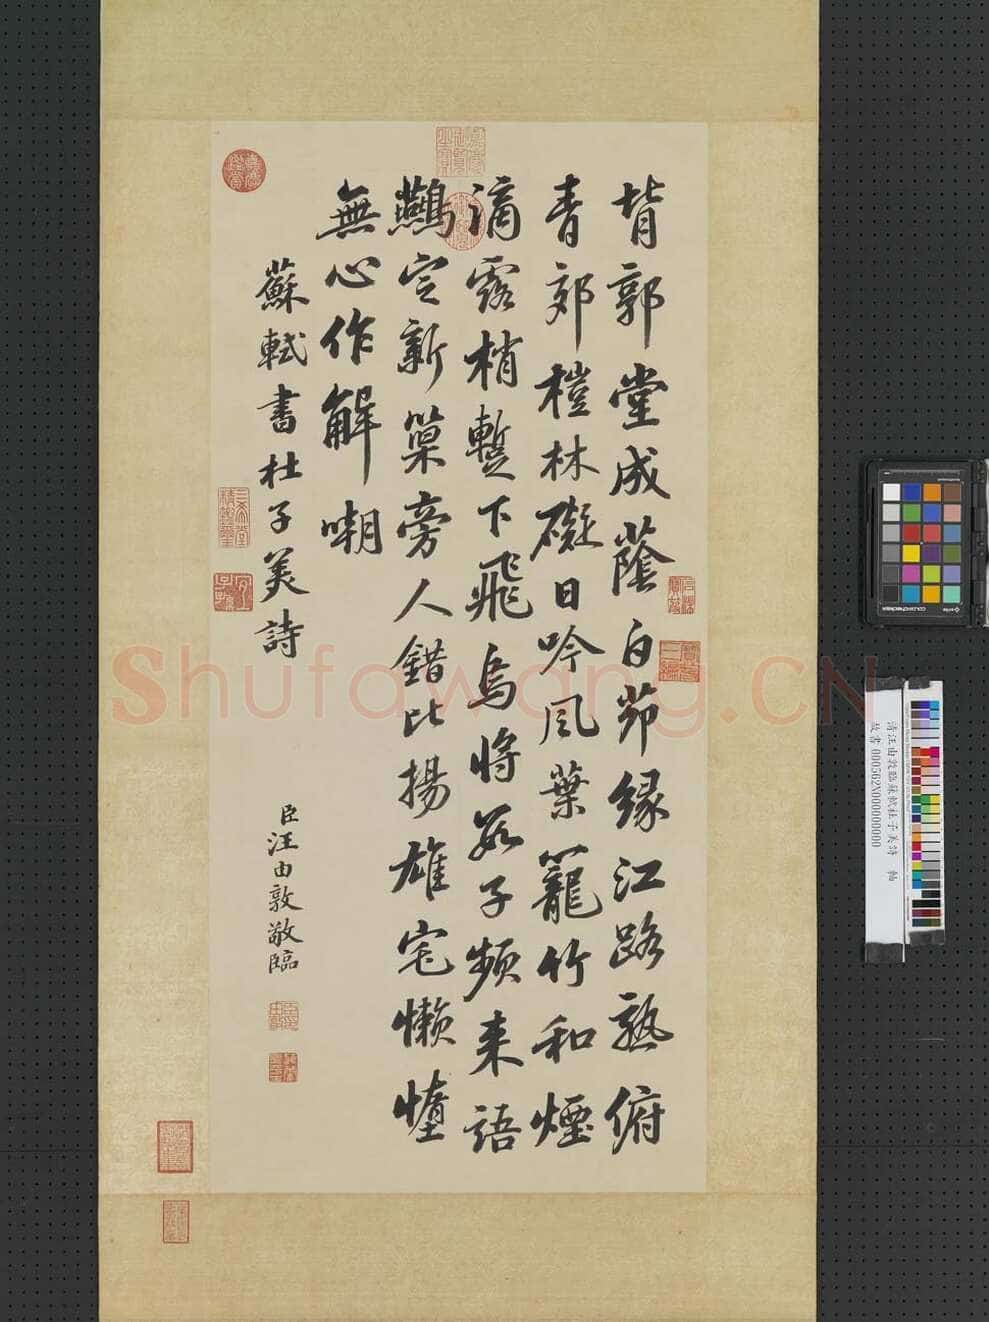 背郭堂成蔭白茆緣江路熟俯
青郊榿林礙日吟風葉籠竹和煙
滴露梢暫下飛烏將數子頻來語
鷰定新巢旁人錯比揚雄宅懶惰
無心作解嘲
蘇軾書杜子美詩
臣汪由敦敬臨
三希堂精鑑璽
宜子孫
石渠寶笈
寶笈三編
Shufawang.CN
清汪由敦臨蘇軾杜子美詩 軸
故書 000562N000000000